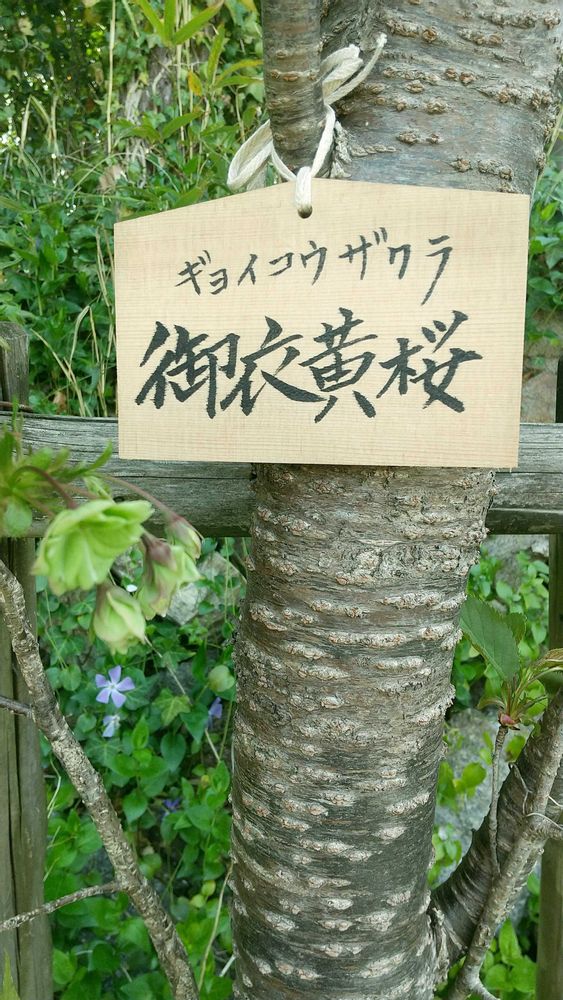 ギョイコウザクラ
御衣黄桜